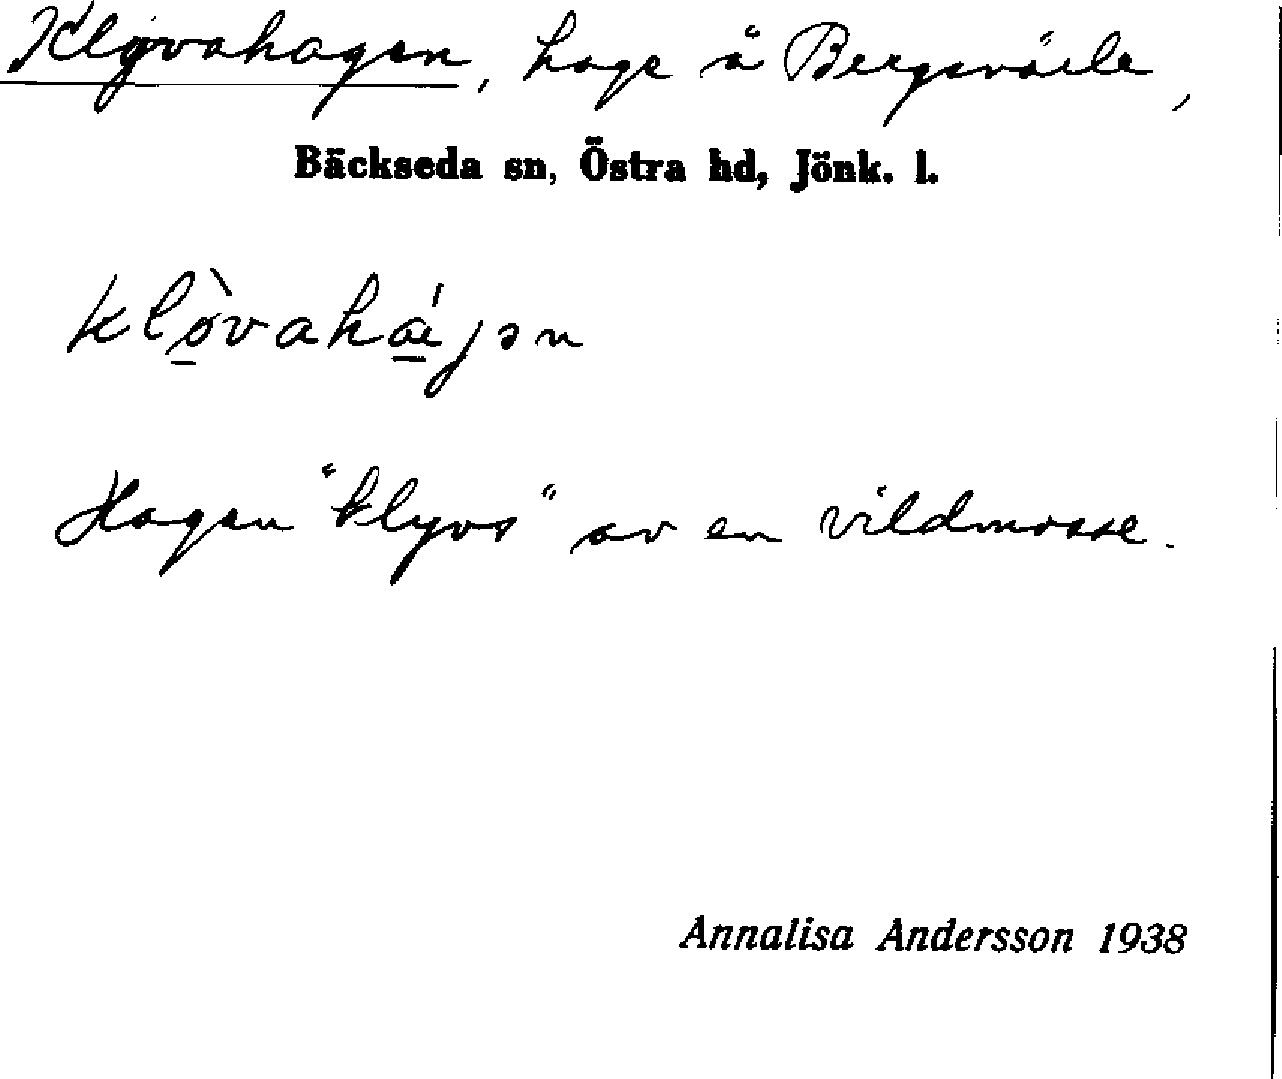 Klövahagen, hage å Bergsvärle,
Bäckseda sn, Östra hd, Jönk. l.
klø̀vahɑ́jən
Hagen "klyvs" av en vildmosse.
Annalisa Andersson 1938